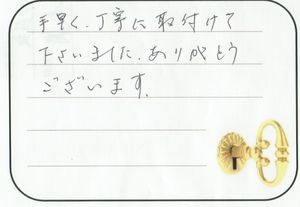 手早く、丁寧に取付けて
下さいました。ありがとう
ございます。